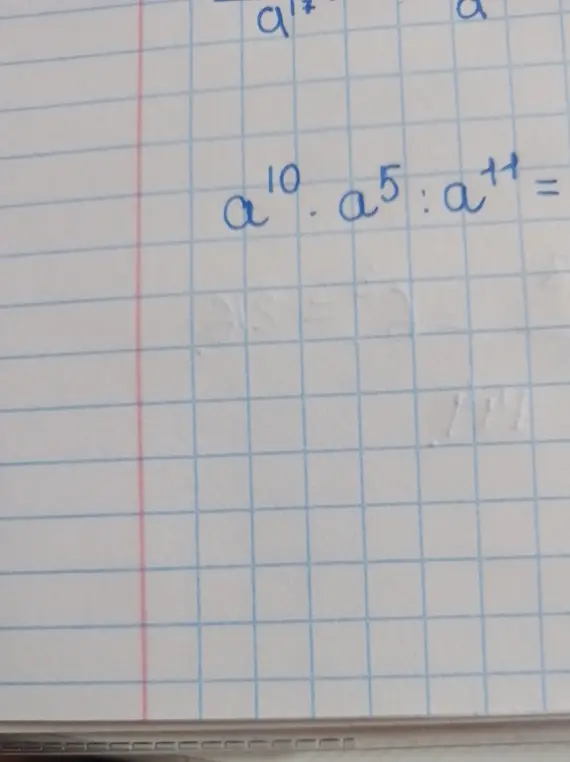 a¹⁷ a
a¹⁰ · a⁵ : a¹¹ =